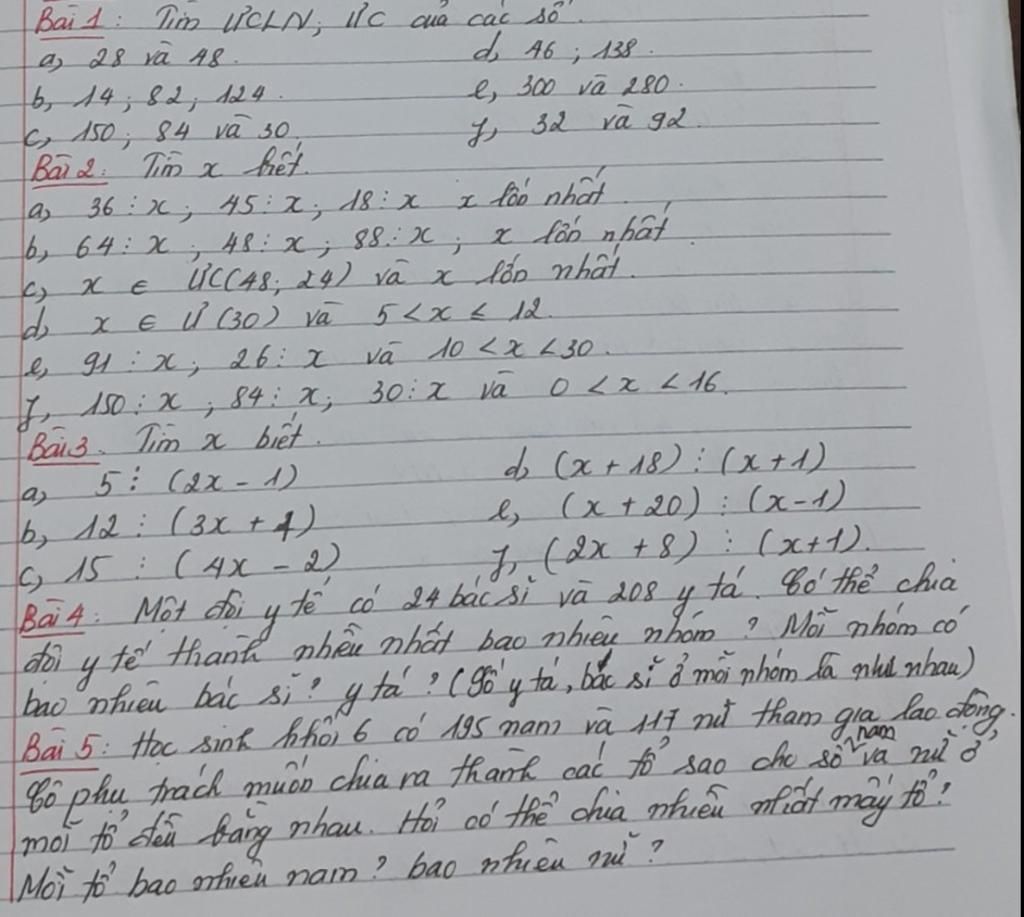 Bài 1: Tìm ƯCLN; ƯC của các số.
a, 28 và 48. d, 46 ; 138.
b, 14 ; 82 ; 124. e, 300 và 280.
c, 150 ; 84 và 30. f, 32 và 92.
Bài 2: Tìm x biết.
a, 36 ⋮ x ; 45 ⋮ x ; 18 ⋮ x x lớn nhất.
b, 64 ⋮ x ; 48 ⋮ x ; 88 ⋮ x ; x lớn nhất.
c, x ∈ ƯC(48; 24) và x lớn nhất.
d, x ∈ Ư(30) và 5 < x ≤ 12.
e, 91 ⋮ x ; 26 ⋮ x và 10 < x < 30.
f, 150 ⋮ x ; 84 ⋮ x ; 30 ⋮ x và 0 < x < 16.
Bài 3. Tìm x biết.
a, 5 ⋮ (2x - 1) d, (x + 18) ⋮ (x + 1)
b, 12 ⋮ (3x + 1) e, (x + 20) ⋮ (x - 1)
c, 15 ⋮ (4x - 2) f, (2x + 8) ⋮ (x + 1).
Bài 4: Một đội y tế có 24 bác sĩ và 208 y tá. Có thể chia
đội y tế thành nhiều nhất bao nhiêu nhóm ? Mỗi nhóm có
bao nhiêu bác sĩ? y tá ? (Số y tá, bác sĩ ở mỗi nhóm là như nhau)
Bài 5: Học sinh khối 6 có 195 nam và 117 nữ tham gia lao động,
Cô phụ trách muốn chia ra thành các tổ sao cho số nam và nữ ở
mỗi tổ đều bằng nhau. Hỏi có thể chia nhiều nhất mấy tổ?
Mỗi tổ bao nhiêu nam? bao nhiêu nữ?